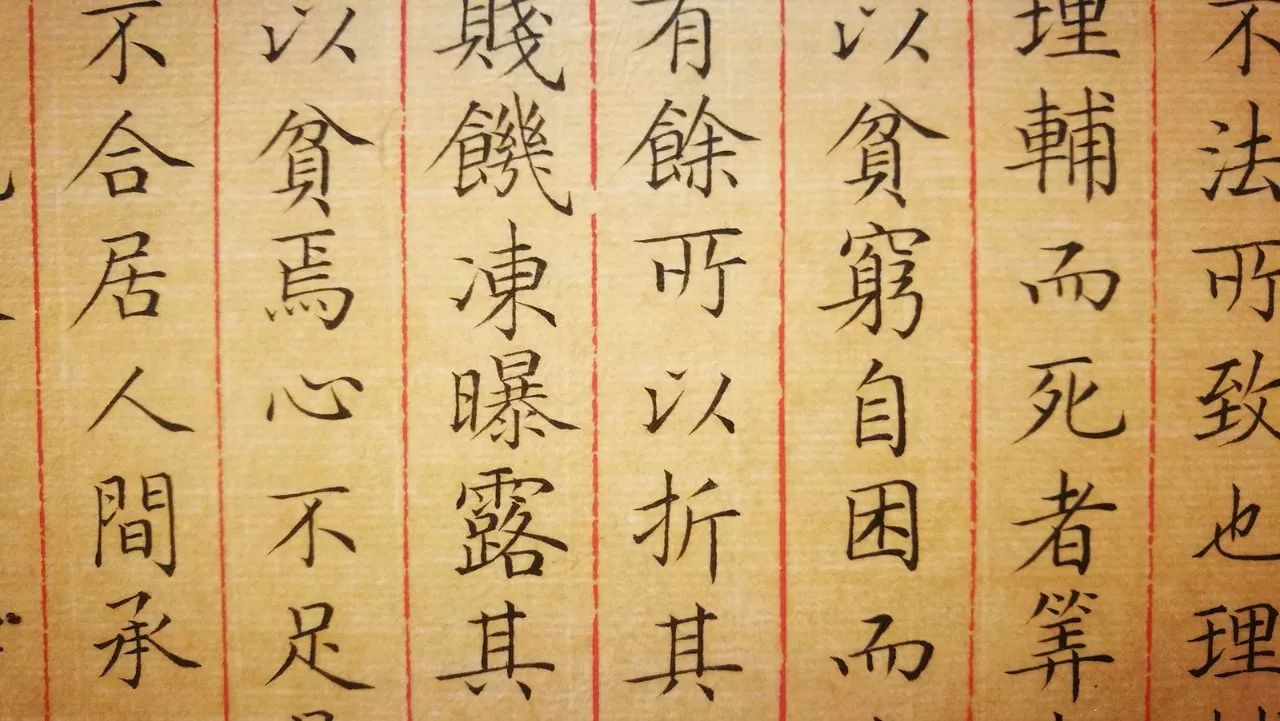 不法所致也理
理輔而死者筭
以貧窮自困而
有餘所以折其
賤饑凍曝露其
以貧焉心不足
不合居人間承